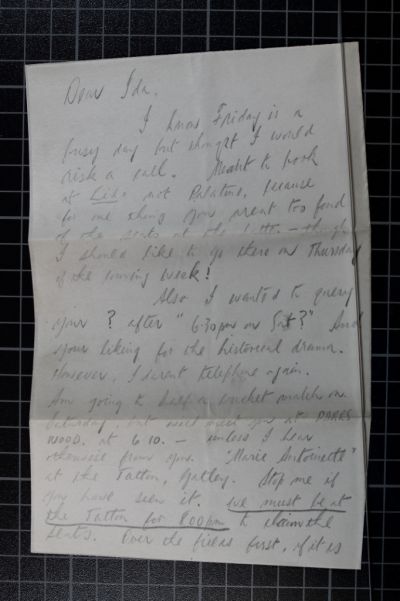 Dear Ida,
I know Friday is a
busy day but thought I would
risk a call. Meant to book
at Lido not Palatine, because
for one thing you arent too fond
of the seats at the latter - though
I should like to go there on Thursday
of the coming week!
Also I wanted to query
your ? after "6.30pm on Sat?" And
your liking for the historical drama.
However, I darent telephone again.
Am going to half a cricket match on
Saturday, but will meet you at PARRS
WOOD. at 6 10. - unless I hear
otherwise from you. "Marie Antoinette"
at the Tatton, Gatley. Stop me if
you have seen it. We must be at
the Tatton for 8.00pm to claim the
seats. Over the fields first, if it is